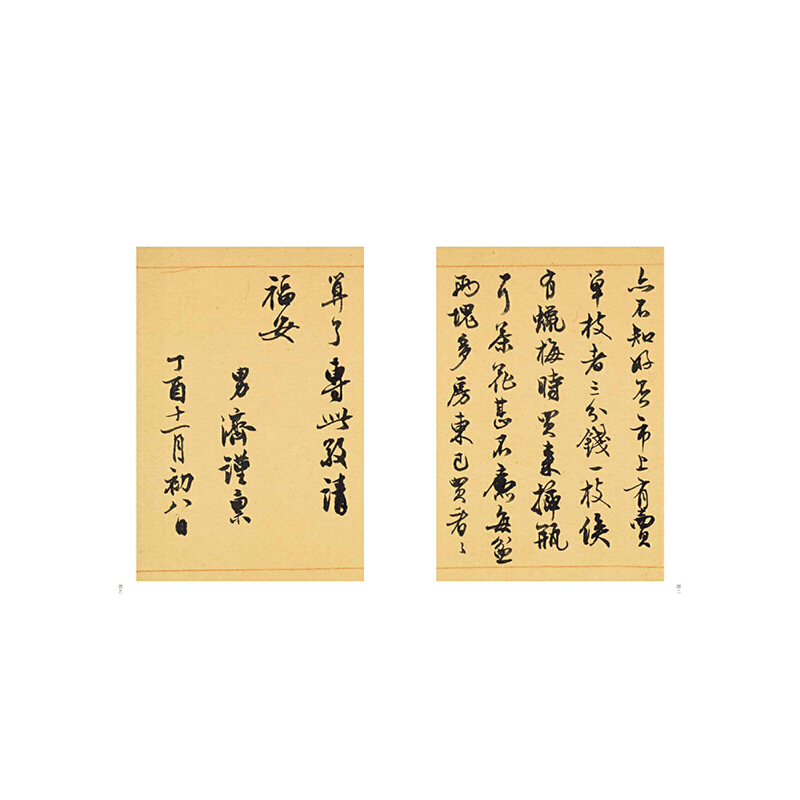 亦不知好否市上有賣
單枝者三分錢一枝侯
有蠟梅時買來插瓶
可茶花甚不廉每盆
兩塊多房東已買看看
算了專此敬請
福安
男濟謹稟
丁酉十一月初八日